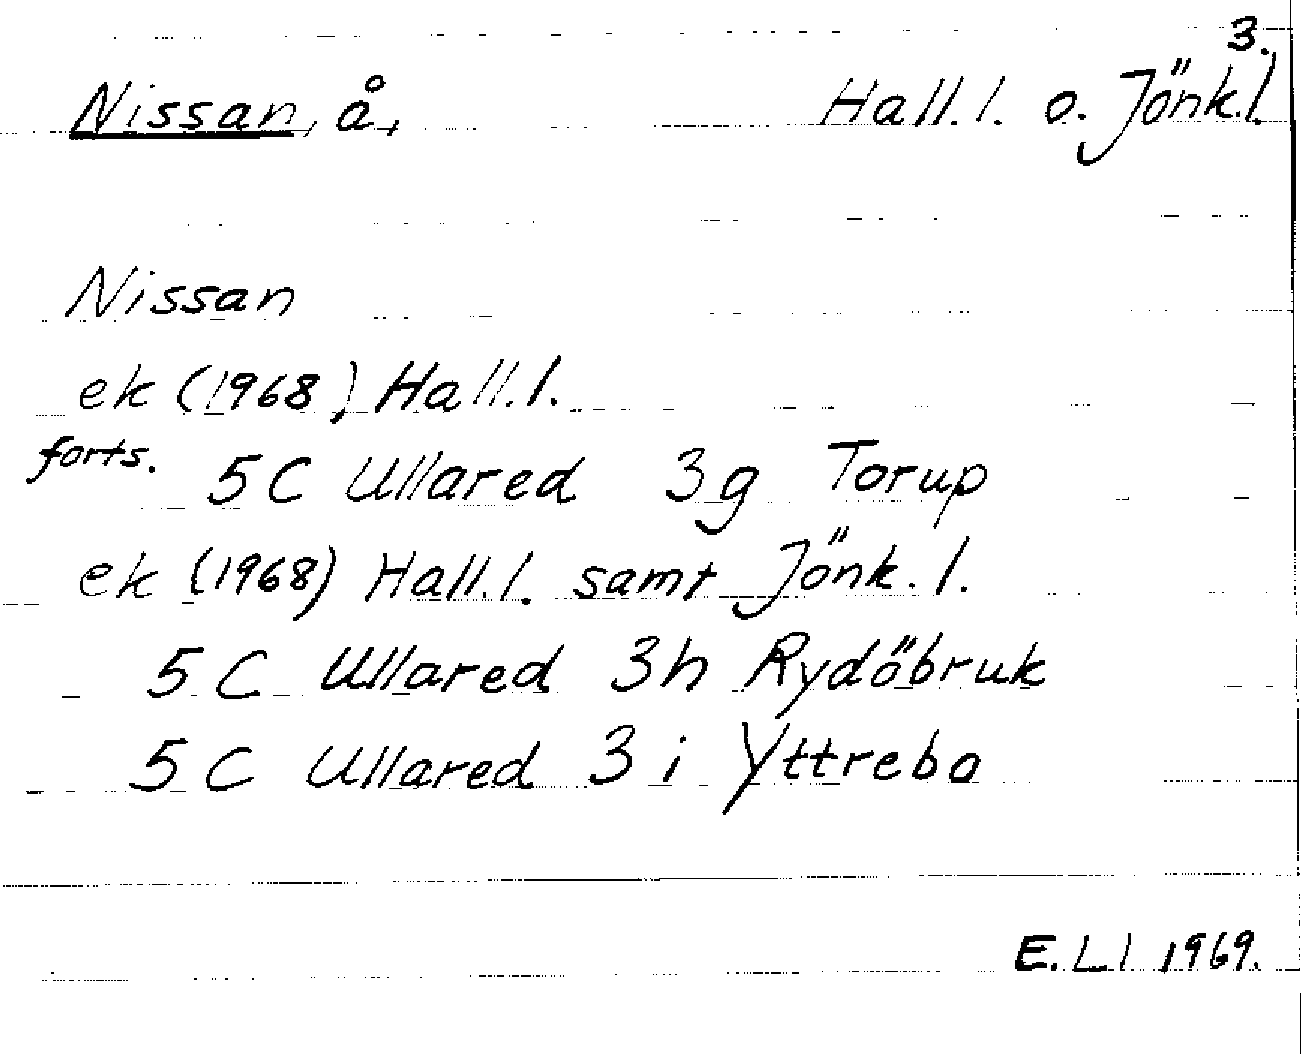 3.
Nissan, å, Hall.l. o. Jönk.l.
Nissan
ek (1968) Hall.l.
forts. 5C Ullared 3g Torup
ek (1968) Hall.l. samt Jönk.l.
5C Ullared 3h Rydöbruk
5C Ullared 3i Yttrebo
E.Ll 1969.